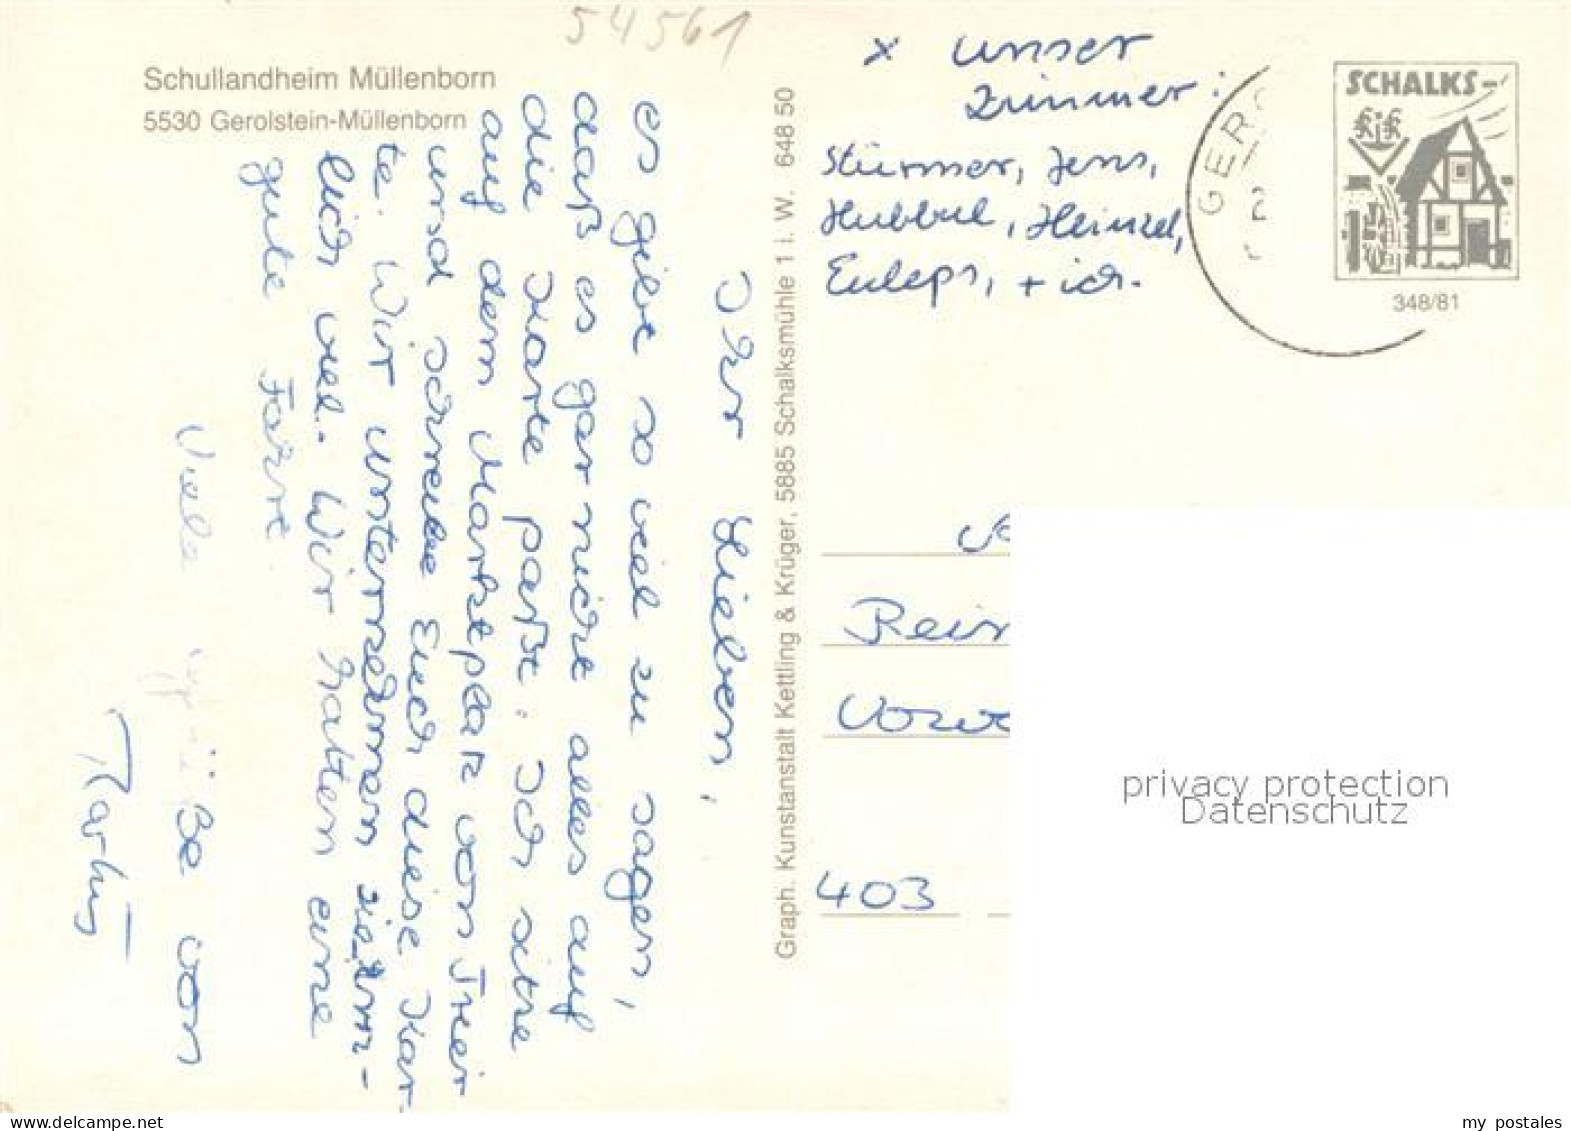 54561
Schullandheim Müllenborn
5530 Gerolstein-Müllenborn
Ihr Lieben,
es gibt so viel zu sagen,
daß es gar nicht alles auf
die Karte paßt. Ich sitze
auf dem Marktplatz von Trier
und schreibe Euch diese Kar-
te. Wir unternehmen ziem-
lich viel. Wir hatten eine
gute Fahrt.
Viele Grüße von
Graph. Kunstanstalt Kettling & Krüger, 5885 Schalksmühle 1 i. W. 648 50
x unser
Zimmer:
Stürmer, Jens,
Hubbul, Heinzel,
+ ich.
GER
2
SCHALKS-
KiK
348/81
403
privacy protection
Datenschutz
my postales